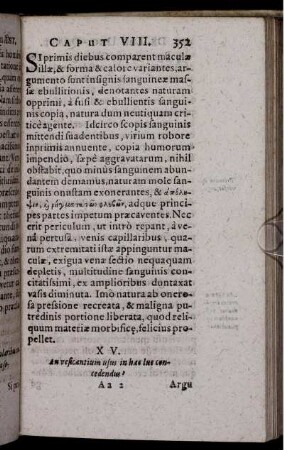 CAPUT VIII. 352
SI primis diebus comparent maculæ
illæ, & forma & calore variantes, ar-
gumento sunt insignis sanguineæ mas-
siæ ebullitionis, denotantes naturam
opprimi, à fusi & ebullientis sangui-
nis copia, natura dum neutiquam cri-
ticè agente. Idcirco scopis sanguinis
mittendi suadentibus, virium robore
inprimis annuente, copia humorum
impendio, sæpè aggravatarum, nihil
obstabit, quo minùs sanguinem abun-
dantem demamus, naturam mole san-
guinis onustam exonerantes, &
τῶν φλεβῶν, adque princi-
pes partes impetum præcaventes. Nec
erit periculum, ut intrò repant, à ve-
nâ pertusa, venis capillaribus, qua-
rum extremitati istæ appinguntur ma-
culæ, exigua venæ sectio nequaquam
depletis, multitudine sanguinis con-
citatissimi, ex amplioribus dontaxat
vasis diminuta. Imò natura ab onero-
sa pressione recreata, & maligna pu-
tredinis portione liberata, quod reli-
quum materiæ morbificę, felicius pro-
pellet.
XV.
An vesicantium usus in hac lue con-
cedendus?
Aa 2 Argu